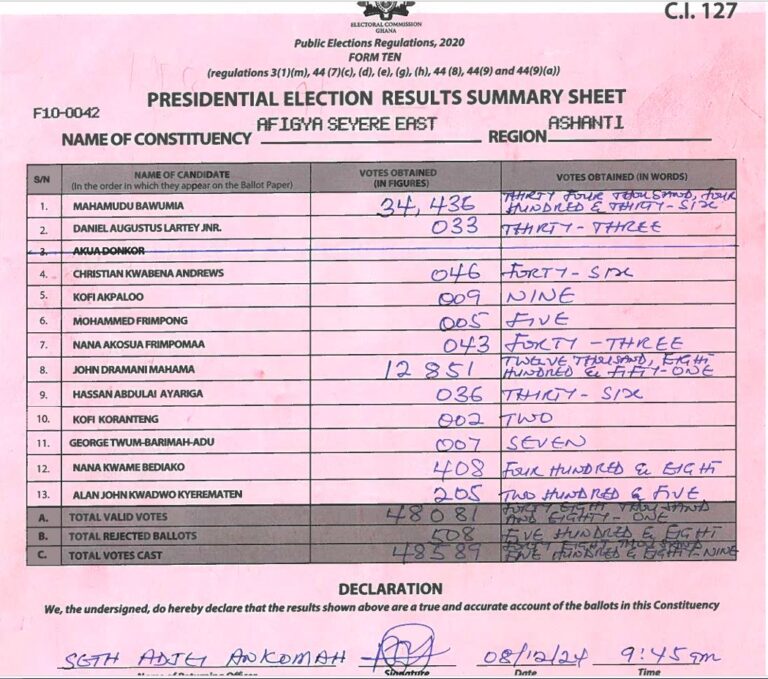 C.I. 127
ELECTORAL COMMISSION
GHANA
Public Elections Regulations, 2020
FORM TEN
(regulations 3(1)(m), 44 (7)(c), (d), (e), (g), (h), 44 (8), 44(9) and 44(9)(a))
PRESIDENTIAL ELECTION RESULTS SUMMARY SHEET
F10-0042
NAME OF CONSTITUENCY AFIGYA SEYERE EAST REGION ASHANTI
S/N NAME OF CANDIDATE (In the order in which they appear on the Ballot Paper) VOTES OBTAINED (IN FIGURES) VOTES OBTAINED (IN WORDS)
1. MAHAMUDU BAWUMIA 34,436 THIRTY FOUR THOUSAND, FOUR HUNDRED & THIRTY-SIX
2. DANIEL AUGUSTUS LARTEY JNR. 033 THIRTY-THREE
3. AKUA DONKOR
4. CHRISTIAN KWABENA ANDREWS 046 FORTY-SIX
5. KOFI AKPALOO 009 NINE
6. MOHAMMED FRIMPONG 005 FIVE
7. NANA AKOSUA FRIMPOMAA 043 FORTY-THREE
8. JOHN DRAMANI MAHAMA 12 851 TWELVE THOUSAND, EIGHT HUNDRED & FIFTY-ONE
9. HASSAN ABDULAI AYARIGA 036 THIRTY-SIX
10. KOFI KORANTENG 002 TWO
11. GEORGE TWUM-BARIMAH-ADU 007 SEVEN
12. NANA KWAME BEDIAKO 408 FOUR HUNDRED & EIGHT
13. ALAN JOHN KWADWO KYEREMATEN 205 TWO HUNDRED & FIVE
A. TOTAL VALID VOTES 48081 FORTY EIGHT THOUSAND AND EIGHTY-ONE
B. TOTAL REJECTED BALLOTS 508 FIVE HUNDRED & EIGHT
C. TOTAL VOTES CAST 48589 FORTY EIGHT THOUSAND FIVE HUNDRED & EIGHTY-NINE
DECLARATION
We, the undersigned, do hereby declare that the results shown above are a true and accurate account of the ballots in this Constituency
SETH ADJEI ANKOMAH 08/12/24 9:45 am
Name of Returning Officer Signature Date Time